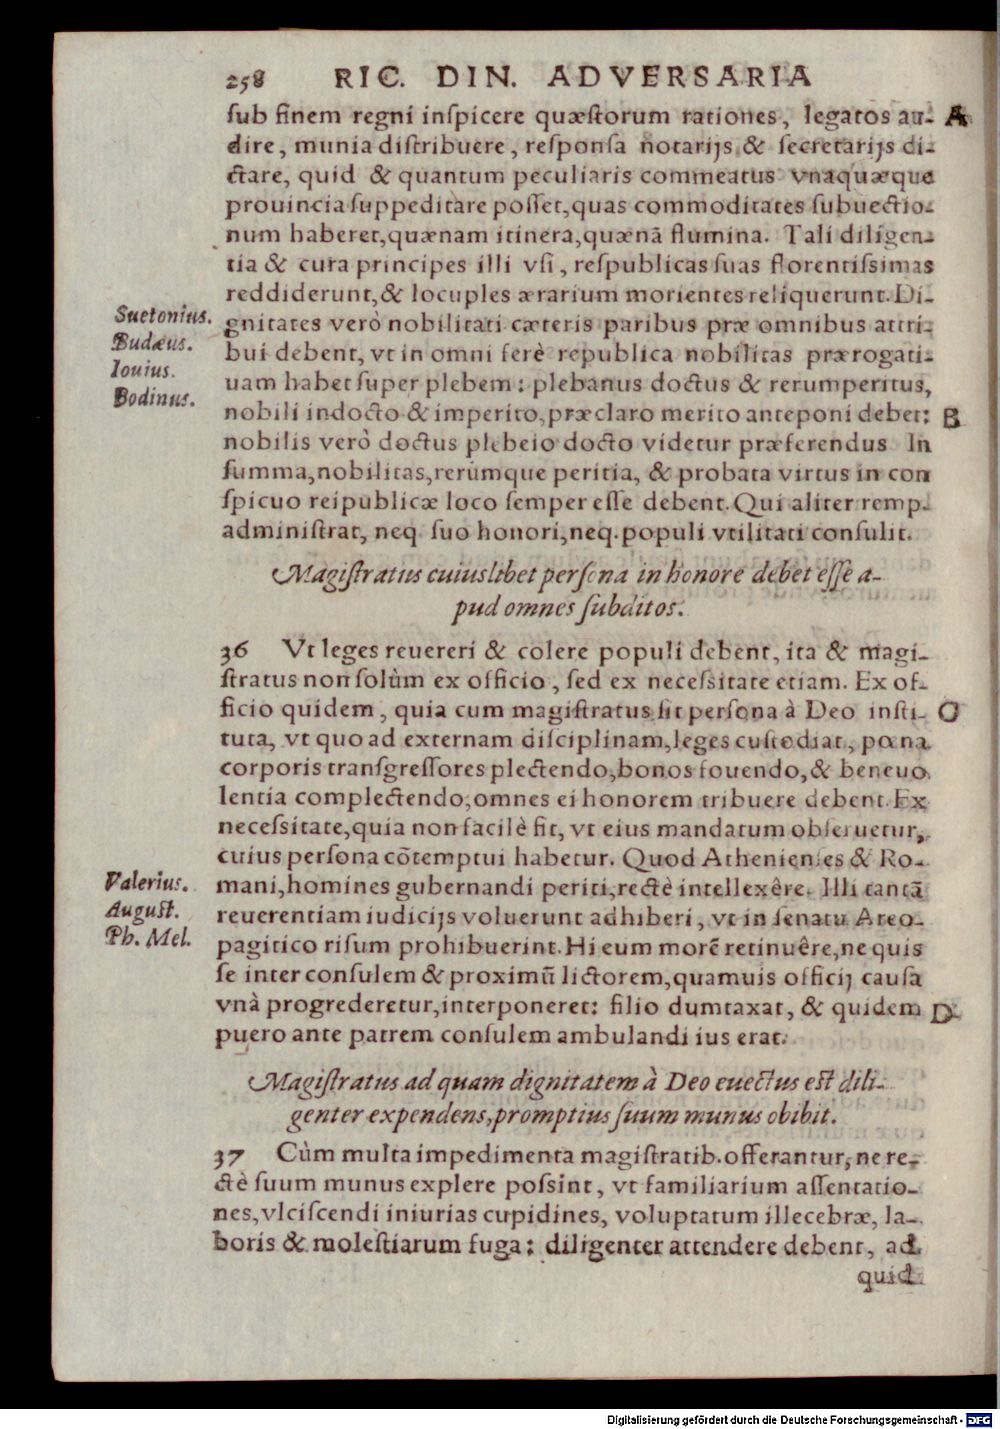 258 RIC. DIN. ADVERSARIA
ſub finem regni inſpicere quæſtorum rationes, legatos au- A
dire, munia diſtribuere, reſponſa notarijs & ſecretarijs di-
ctare, quid & quantum peculiaris commeatus vnaquæque
prouincia ſuppeditare poſſet, quas commoditates ſubuectio-
num haberet, quænam itinera, quænã flumina. Tali diligen-
tia & cura principes illi vſi, reſpublicas ſuas florentiſsimas
reddiderunt, & locuples ærarium morientes reliquerunt. Di-
Suetonius.
gnitates verò nobilitati cæteris paribus præ omnibus attri-
Budæus.
bui debent, vt in omni ferè republica nobilitas prærogati-
Iouius.
uam habet ſuper plebem: plebanus doctus & rerum peritus,
Bodinus.
nobili indocto & imperito, præclaro merito anteponi debet: B
nobilis verò doctus plebeio docto videtur præferendus In
ſumma, nobilitas, rerúmque peritia, & probata virtus in con
ſpicuo reipublicæ loco ſemper eſſe debent. Qui aliter remp.
adminiſtrat, neq. ſuo honori, neq. populi vtilitati conſulit.
Magiſtratus cuiuslibet perſona in honore debet eſſe a-
pud omnes ſubditos.
36 Vt leges reuereri & colere populi debent, ita & magi-
ſtratus non ſolùm ex officio, ſed ex neceſsitate etiam. Ex of-
ficio quidem, quia cum magiſtratus ſit perſona à Deo inſti- C
tuta, vt quo ad externam diſciplinam, leges cuſtodiat, pœna
corporis tranſgreſſores plectendo, bonos fouendo, & beneuo
lentia complectendo, omnes ei honorem tribuere debent. Ex
neceſsitate, quia non facilè fit, vt eius mandatum obſeruetur,
cuius perſona cõtemptui habetur. Quod Athenienſes & Ro-
Valerius.
mani, homines gubernandi periti, rectè intellexêre. Illi tantã
Auguſt.
reuerentiam iudicijs voluerunt adhiberi, vt in ſenatu Areo-
Ph. Mel.
pagitico riſum prohibuerint. Hi eum morẽ retinuêre, ne quis
ſe inter conſulem & proximũ lictorem, quamuis officij cauſa
vnà progrederetur, interponeret: filio dumtaxat, & quidem D
puero ante patrem conſulem ambulandi ius erat.
Magiſtratus ad quam dignitatem à Deo euectus eſt dili-
genter expendens, promptius ſuum munus obibit.
37 Cùm multa impedimenta magiſtratib. offerantur, ne re-
ctè ſuum munus explere poſsint, vt familiarium aſſentatio-
nes, vlciſcendi iniurias cupidines, voluptatum illecebræ, la-
boris & moleſtiarum fuga: diligenter attendere debent, ad
quid
Digitalisierung gefördert durch die Deutsche Forschungsgemeinschaft - DFG